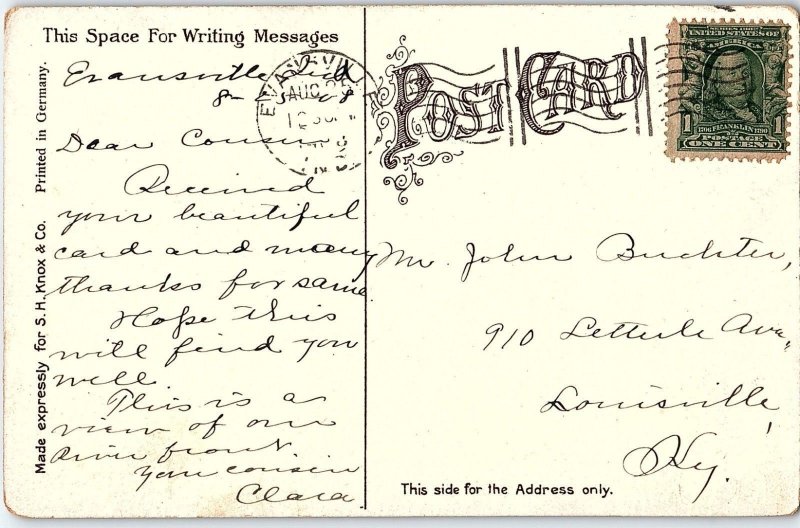 This Space For Writing Messages
Evansville Ind
8- 08
Dear Cousin
Received
your beautiful
card and many
thanks for same
Hope this
will find you
well.
This is a
view of our
River front.
your cousin
Clara
Printed in Germany.
Made expressly for S. H. Knox & Co.
EVANSVILLE
AUG
POST CARD
SERIES 1902
UNITED STATES OF
AMERICA
1 1
1706 FRANKLIN 1790
POSTAGE
ONE CENT
Mr. John Buchter,
910 Letterle Ave,
Louisville,
Ky.
This side for the Address only.